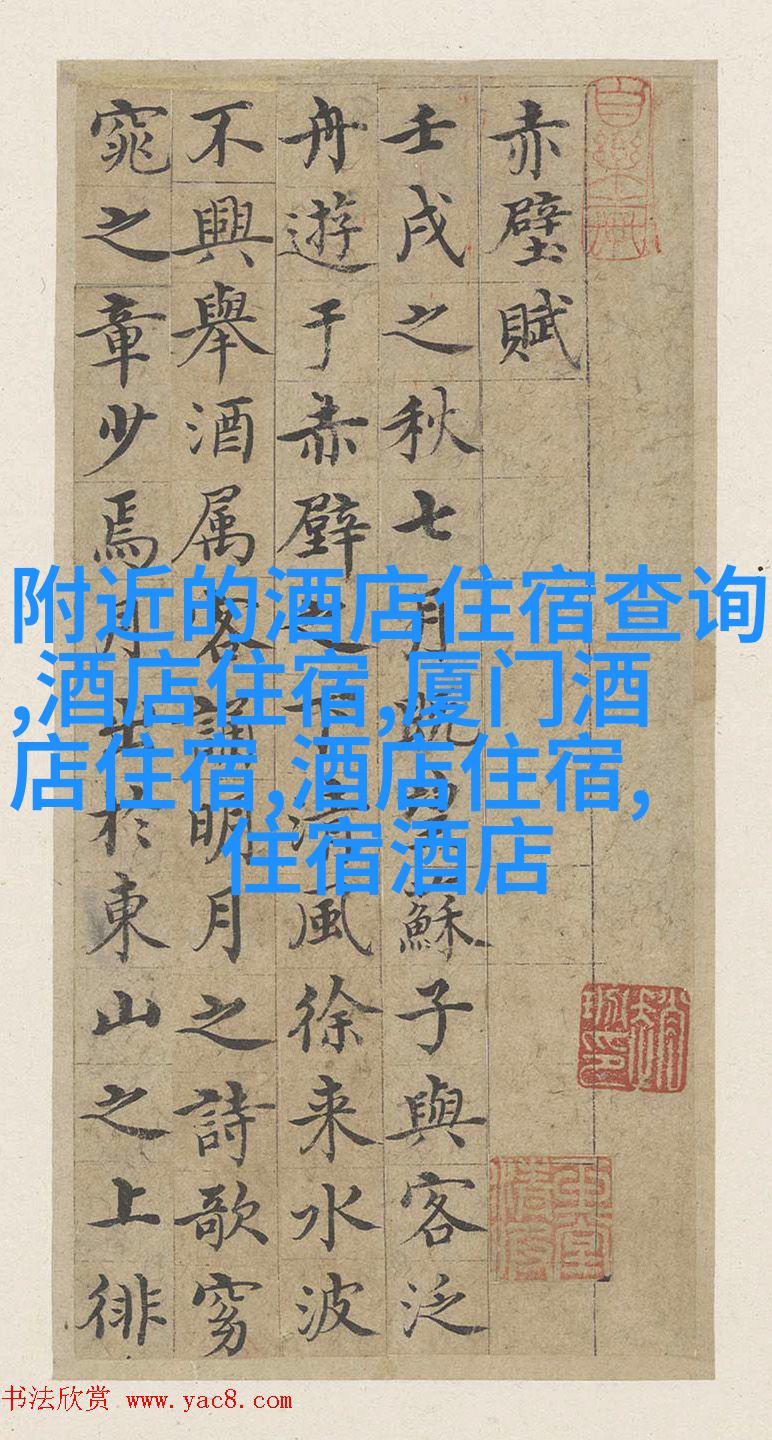 赤壁賦
壬戌之秋七月既望蘇子與客泛
舟遊于赤壁之下清風徐来水波
不興舉酒属客誦明月之詩歌窈
窕之章少焉月出於東山之上徘
附近的酒店住宿查询
,酒店住宿,厦门酒
店住宿,酒店住宿,
住宿酒店
书法欣赏 www.yac8.com